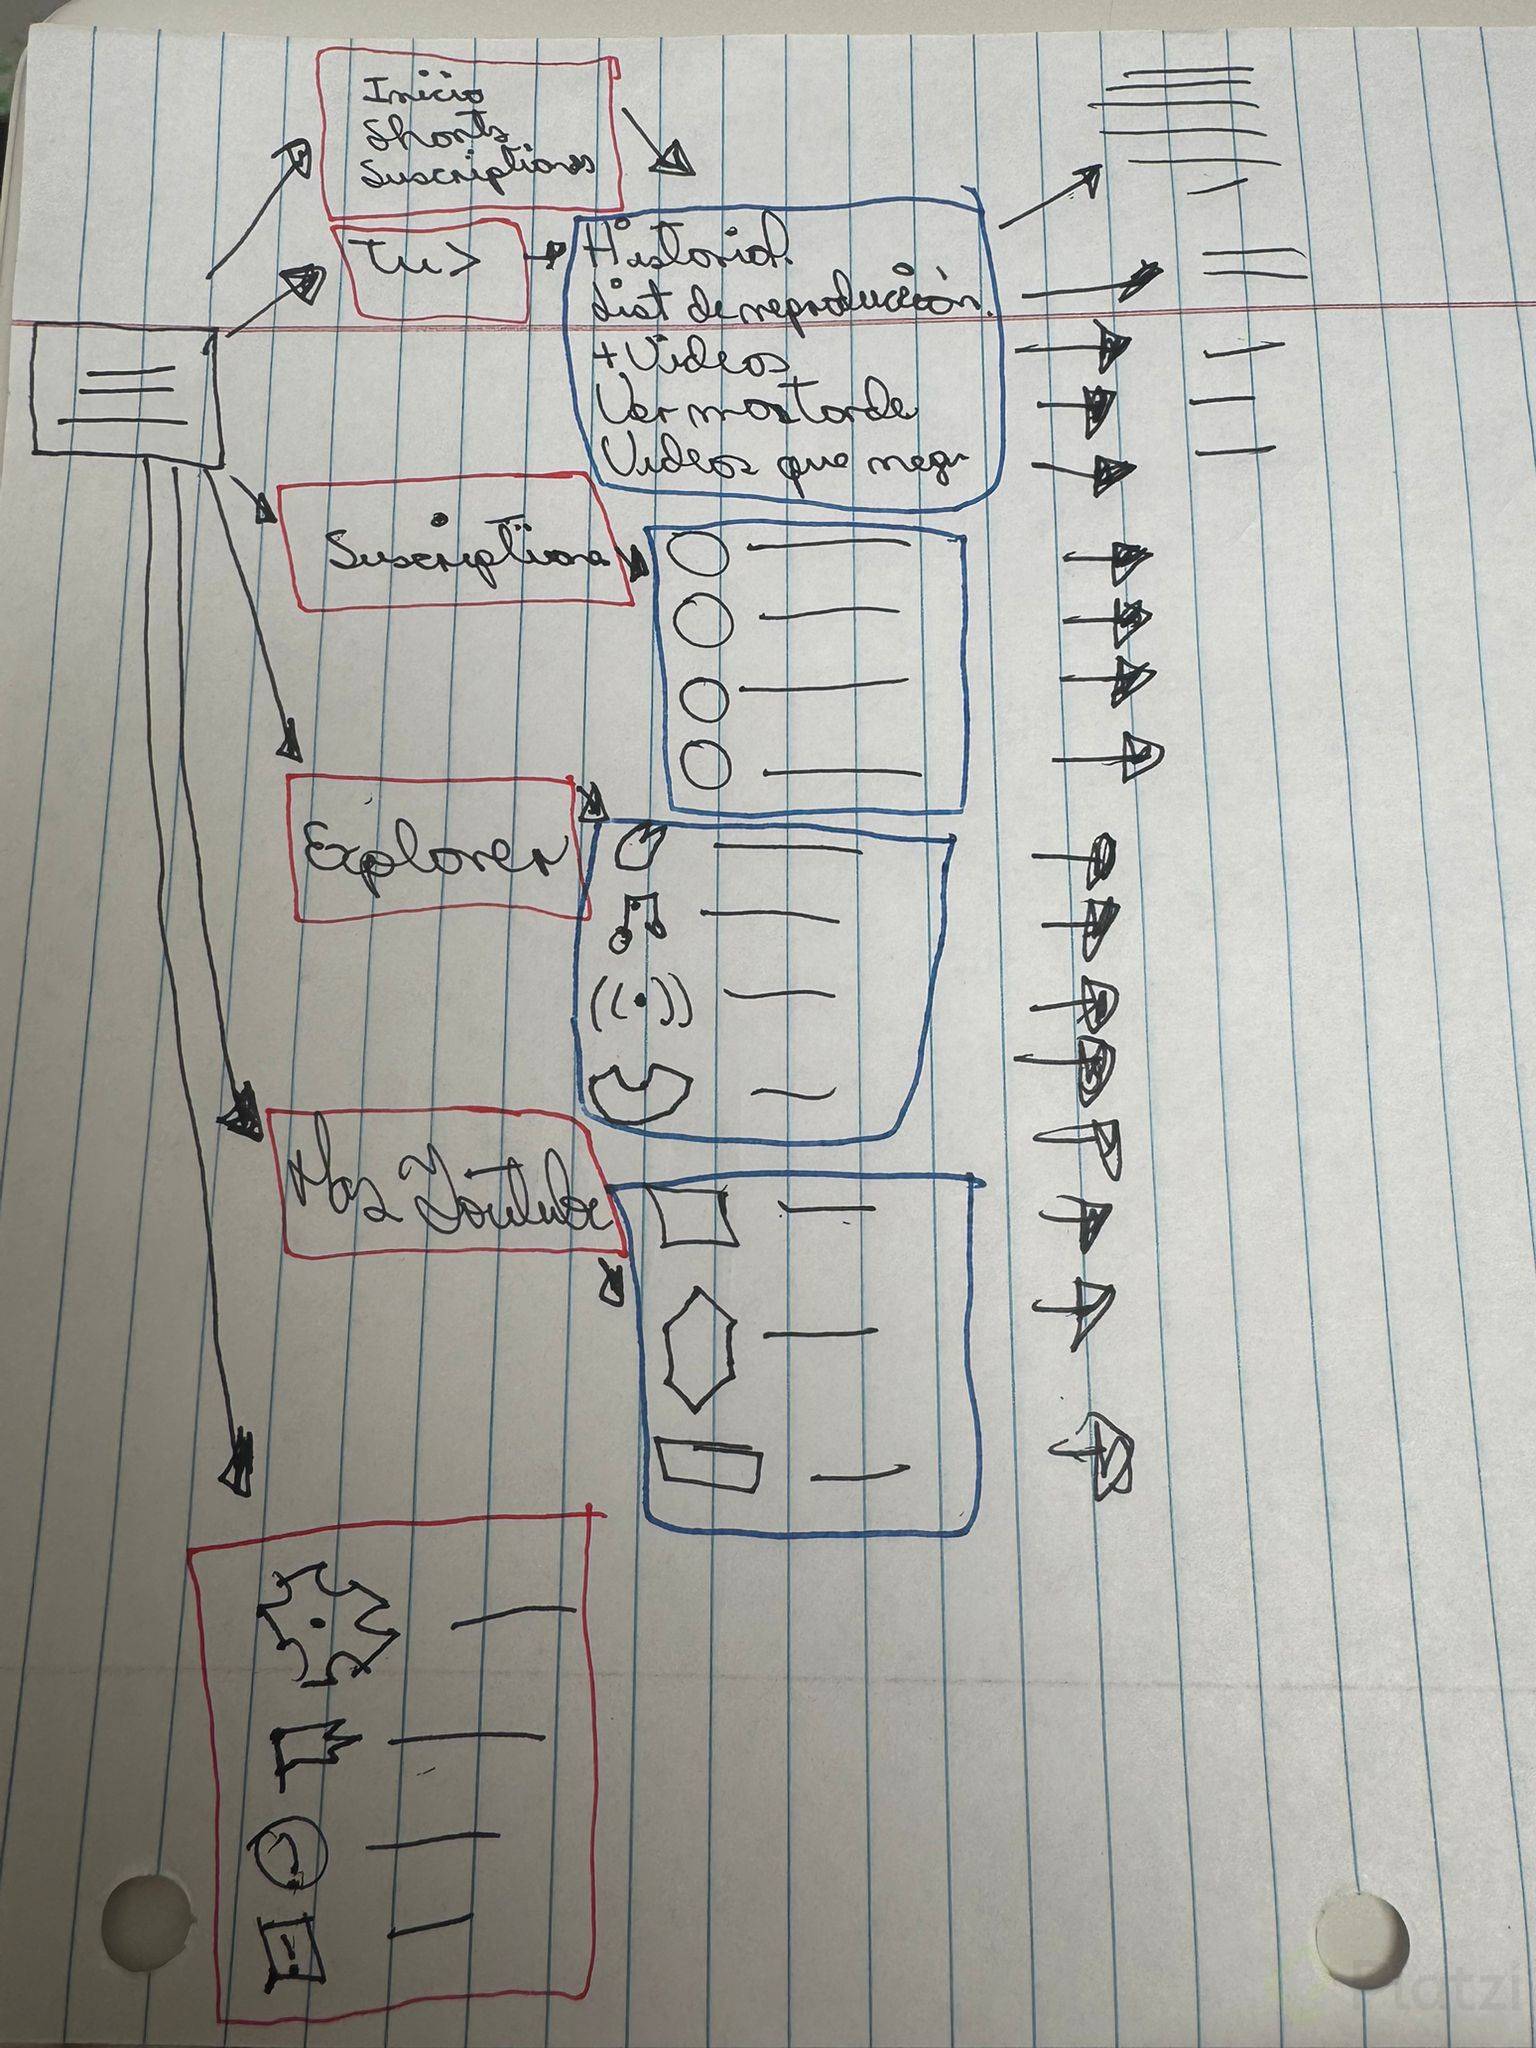 Inicio
Shorts
Suscriptiones
Tu >
Historial.
List de reproducción.
+ Videos
Ver mas tarde
Videos que megu
Suscriptions
Explorer
Mas Youtube
Platzi